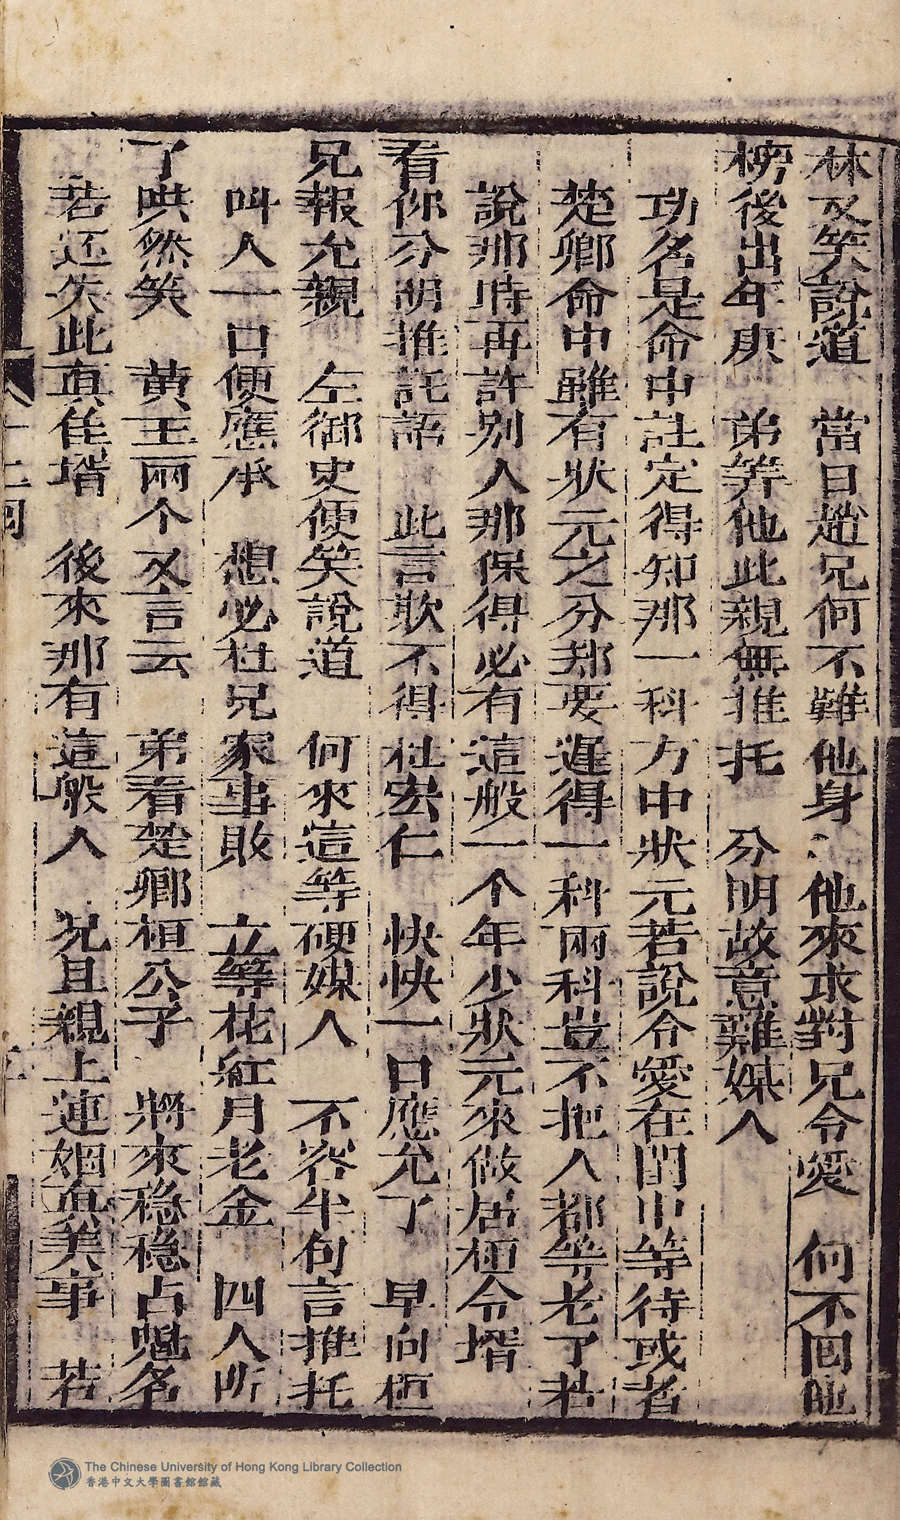 林又笑說道　當日趙兄何不難他身　他來求對兄令愛　何不回他
榜後出年庚　弟等他此親無推托　分明故意難媒人
功名是命中註定得知那一科方中狀元若說令愛在閨中等待或者
楚卿命中雖有狀元之分却要遲得一科兩科豈不把人都等老了若
說那時再許別人那保得必有這般一个年少狀元來做居桓令壻
看你分明推託語　此言欺不得杜宏仁　快快一口應允了　早向桓
兄報允親　左御史便笑說道　何來這等硬媒人　不容半句言推托
叫人一口便應承　想必杜兄家事敗　立等花紅月老金　四人听
了哄然笑　黄王兩个又言云　弟看楚卿桓公子　將來穏穏占魁名
若还失此真佳壻　後來那有這般人　况且親上連姻真美事　若
The Chinese University of Hong Kong Library Collection
香港中文大學圖書館館藏